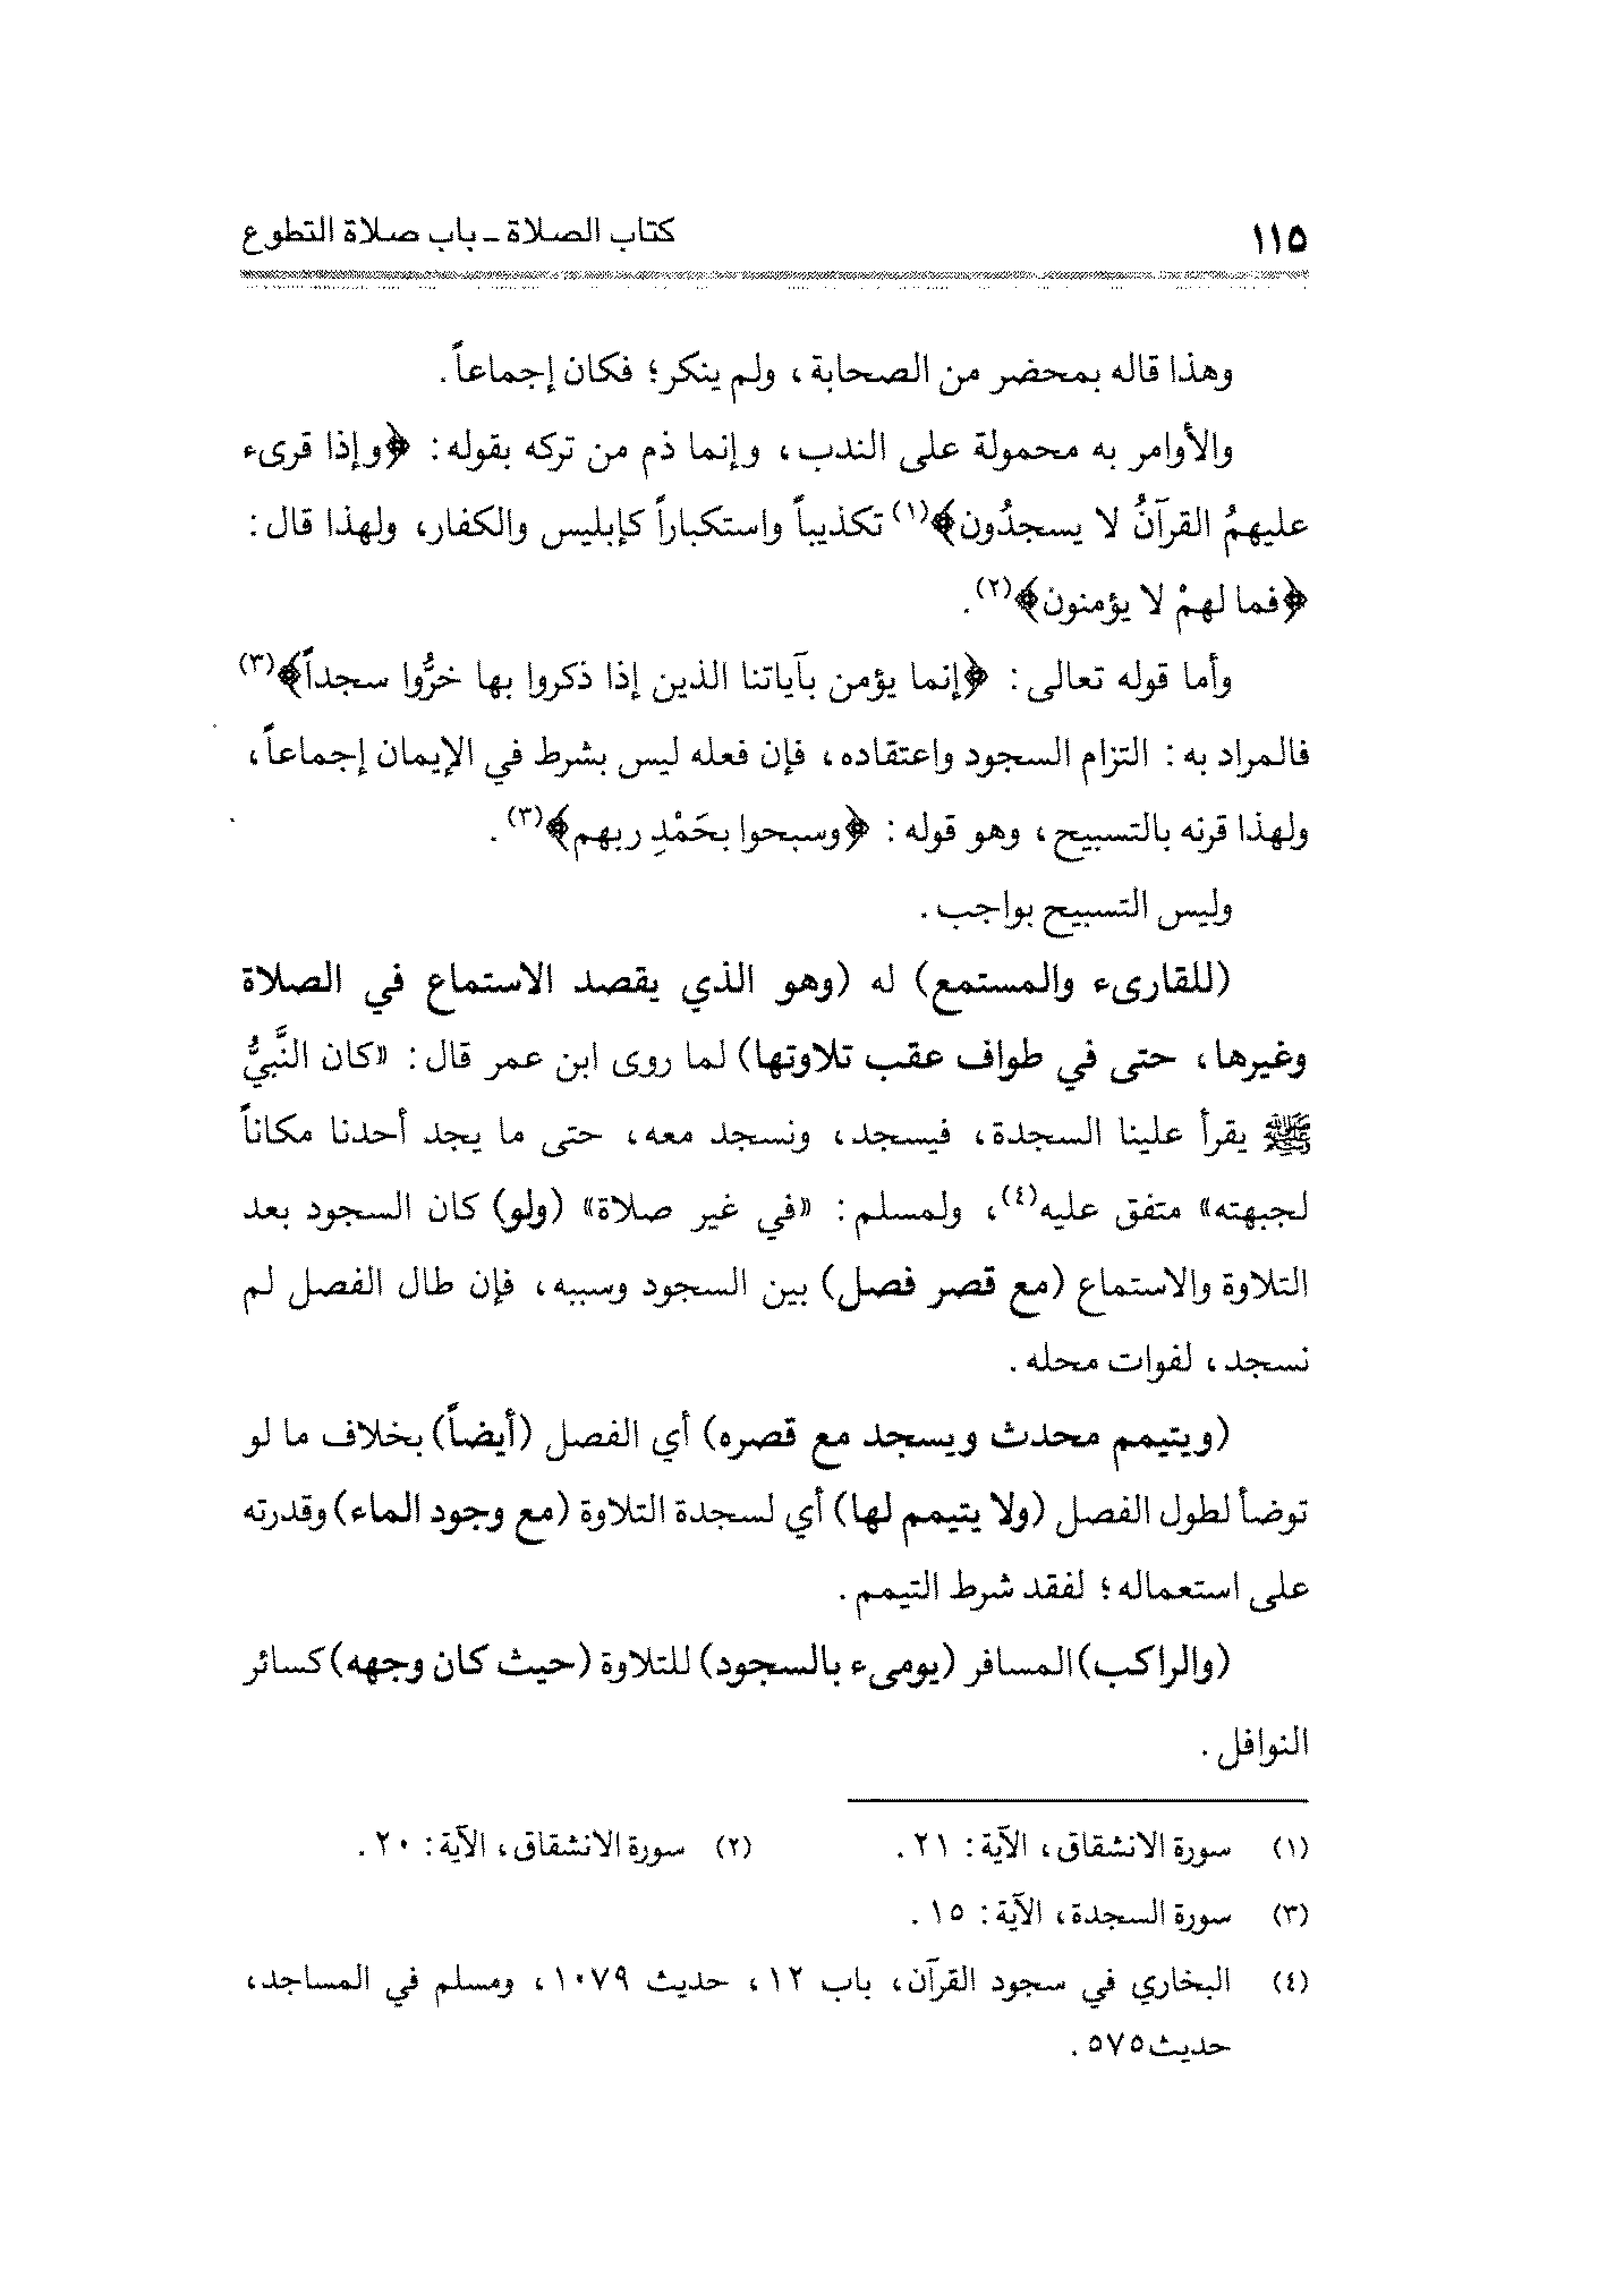 ١١٥
كتاب الصلاة ـ باب صلاة التطوع
وهذا قاله بمحضر من الصحابة، ولم ينكر؛ فكان إجماعاً.
والأوامر به محمولة على الندب، وإنما ذم من تركه بقوله: ﴿وإذا قرىء
عليهمُ القرآنُ لا يسجدُون﴾(١) تكذيباً واستكباراً كإبليس والكفار، ولهذا قال:
﴿فما لهمْ لا يؤمنون﴾(٢).
وأما قوله تعالى: ﴿إنما يؤمن بآياتنا الذين إذا ذكروا بها خرُّوا سجداً﴾(٣)
فالمراد به: التزام السجود واعتقاده، فإن فعله ليس بشرط في الإيمان إجماعاً،
ولهذا قرنه بالتسبيح، وهو قوله: ﴿وسبحوا بحَمْدِ ربهم﴾(٣).
وليس التسبيح بواجب.
(للقارىء والمستمع) له (وهو الذي يقصد الاستماع في الصلاة
وغيرها، حتى في طواف عقب تلاوتها) لما روى ابن عمر قال: «كان النَّبيُّ
ﷺ يقرأ علينا السجدة، فيسجد، ونسجد معه، حتى ما يجد أحدنا مكاناً
لجبهته» متفق عليه(٤)، ولمسلم: «في غير صلاة» (ولو) كان السجود بعد
التلاوة والاستماع (مع قصر فصل) بين السجود وسببه، فإن طال الفصل لم
نسجد، لفوات محله.
(ويتيمم محدث ويسجد مع قصره) أي الفصل (أيضاً) بخلاف ما لو
توضأ لطول الفصل (ولا يتيمم لها) أي لسجدة التلاوة (مع وجود الماء) وقدرته
على استعماله؛ لفقد شرط التيمم.
(والراكب) المسافر (يومىء بالسجود) للتلاوة (حيث كان وجهه) كسائر
النوافل.
(١) سورة الانشقاق، الآية: ٢١. (٢) سورة الانشقاق، الآية: ٢٠.
(٣) سورة السجدة، الآية: ١٥.
(٤) البخاري في سجود القرآن، باب ١٢، حديث ١٠٧٩، ومسلم في المساجد،
حديث٥٧٥.